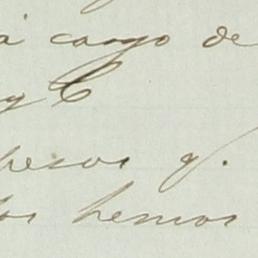 á cargo de
y C
pesos q.
los hemos